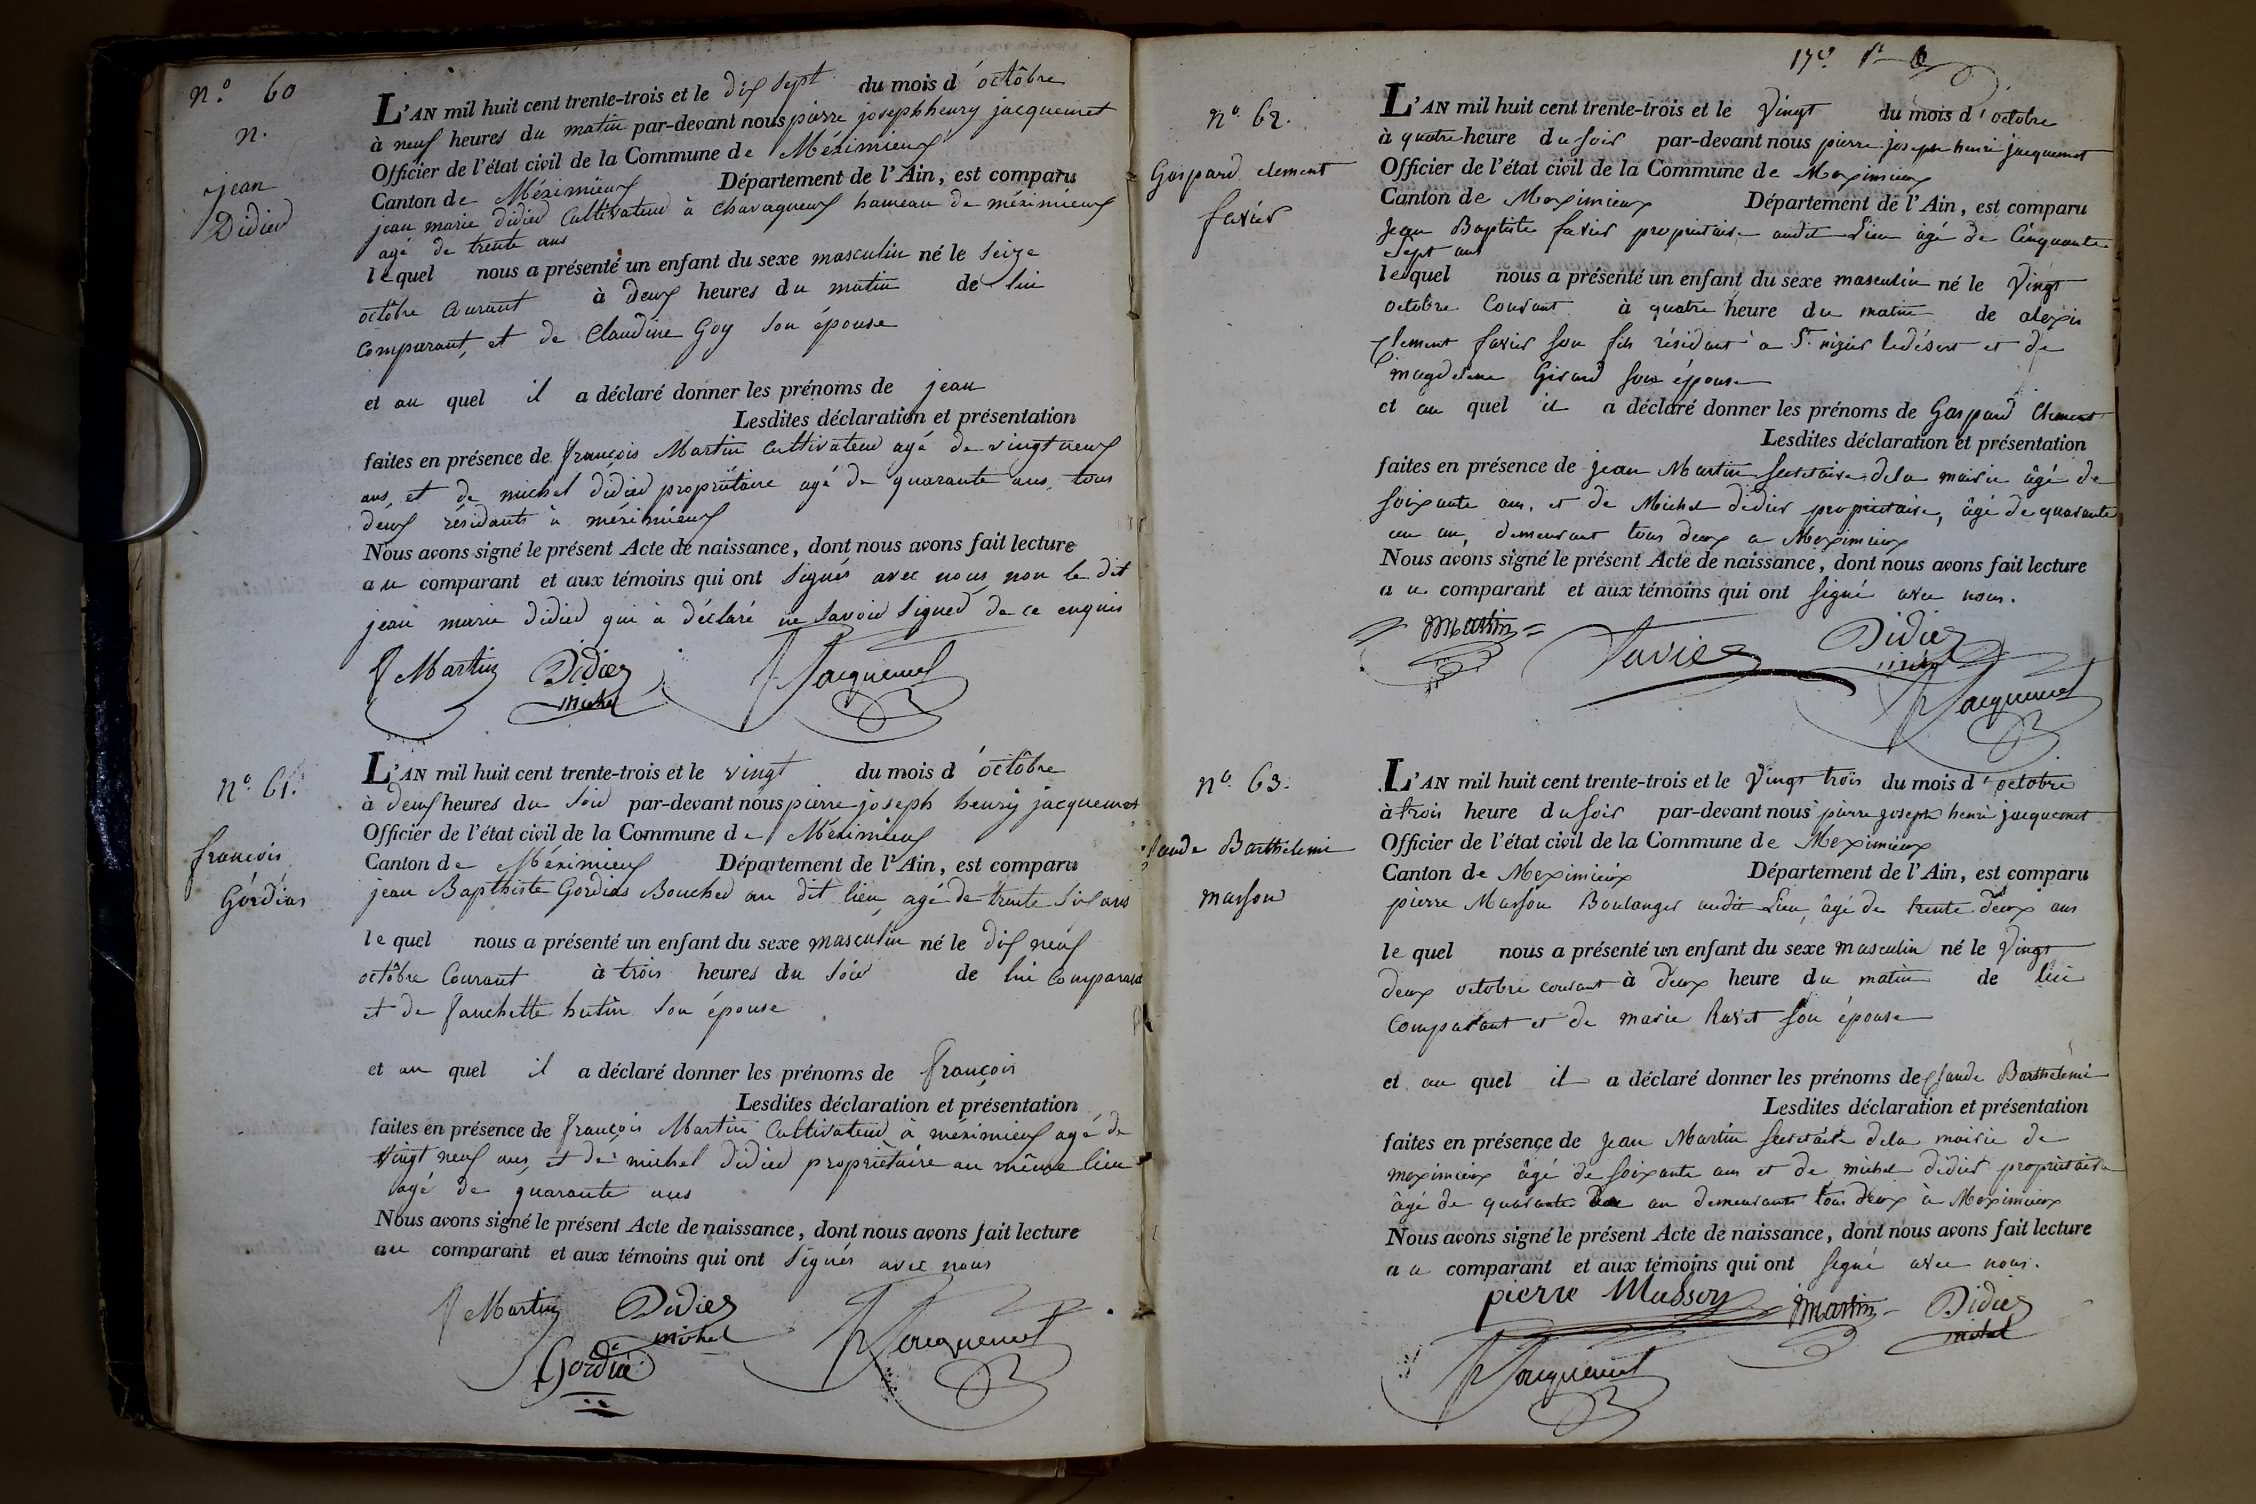 n.o 60
n.
jean
Didier
L'AN mil huit cent trente-trois et le dix sept du mois d'octôbre
à neuf heures du matin par-devant nous pierre joseph henry jacquemet
Officier de l'état civil de la Commune de Méximieux
Canton de Méximieux Département de l'Ain, est comparu
jean marie didier Cultivateur à Chavagneux hameau de méximieux
agé de trente ans
lequel nous a présenté un enfant du sexe masculin né le seize
octôbre Courant à deux heures du matin de lui
comparant, et de Claudine Goy son épouse
et au quel il a déclaré donner les prénoms de jean
Lesdites déclaration et présentation
faites en présence de françois Martin Cultivateur agé de vingt neuf
ans, et de michel didier propriétaire agé de quarante ans, tous
deux résidants à méximieux
Nous avons signé le présent Acte de naissance, dont nous avons fait lecture
au comparant et aux témoins qui ont signés avec nous non le dit
jean marie didier qui à déclaré ne savoir signer de ce enquis
f Martin Didier michel Jacquemet
n.o 61.
françois
Gordias
L'AN mil huit cent trente-trois et le vingt du mois d'octôbre
à deux heures du soir par-devant nous pierre joseph henry jacquemet
Officier de l'état civil de la Commune de Méximieux
Canton de Méximieux Département de l'Ain, est comparu
jean Bapthiste Gordias Boucher au dit lieu, agé de trente six ans
lequel nous a présenté un enfant du sexe masculin né le dix neuf
octôbre Courant à trois heures du soir de lui comparant
et de fanchette hutin son épouse
et au quel il a déclaré donner les prénoms de françois
Lesdites déclaration et présentation
faites en présence de françois Martin Cultivateur à méximieux agé de
vingt neuf ans, et de michel didier propriétaire au même lieu
agé de quarante ans
Nous avons signé le présent Acte de naissance, dont nous avons fait lecture
au comparant et aux témoins qui ont signés avec nous
f Martin Didier michel Jacquemet
Gordia
17e.
n.o 62.
Gaspard clement
favier
L'AN mil huit cent trente-trois et le Vingt du mois d'octobre
à quatre heure du soir par-devant nous pierre joseph henri jacquemet
Officier de l'état civil de la Commune de Meximieux
Canton de Meximieux Département de l'Ain, est comparu
Jean Baptiste favier propriétaire audit Lieu âgé de Cinquante
Sept ans
lequel nous a présenté un enfant du sexe masculin né le Vingt
octobre Courant à quatre heure du matin de alexis
Clement favier son fils résidant à St. nizier ledésert et de
magdelene Girard son épouse
et au quel il a déclaré donner les prénoms de Gaspard Clement
Lesdites déclaration et présentation
faites en présence de jean Martin Secretaire dela mairie âgé de
soixante ans, et de Michel didier propriétaire, âgé de quarante
un an, demeurant tous deux a Meximieux
Nous avons signé le présent Acte de naissance, dont nous avons fait lecture
au comparant et aux témoins qui ont signé avec nous.
Martin Favier Didier michel
Jacquemet
n.o 63.
Claude Barthelemi
masson
L'AN mil huit cent trente-trois et le Vingt trois du mois d'octobre
à trois heure du soir par-devant nous pierre joseph henri jacquemet
Officier de l'état civil de la Commune de Meximieux
Canton de Meximieux Département de l'Ain, est comparu
pierre Masson Boulanger audit Lieu, âgé de trente deux ans
lequel nous a présenté un enfant du sexe masculin né le Vingt
deux octobre courant à deux heure du matin de lui
Comparant et de marie Ravet son épouse
et au quel il a déclaré donner les prénoms de Claude Barthélemi
Lesdites déclaration et présentation
faites en présence de jean Martin Secretaire dela mairie de
meximieux âgé de soixante ans et de michel didier propriétaire
âgé de quarante un an demeurants tous deux à Meximieux
Nous avons signé le présent Acte de naissance, dont nous avons fait lecture
au comparant et aux témoins qui ont signé avec nous.
pierre Masson Martin Didier michel
Jacquemet